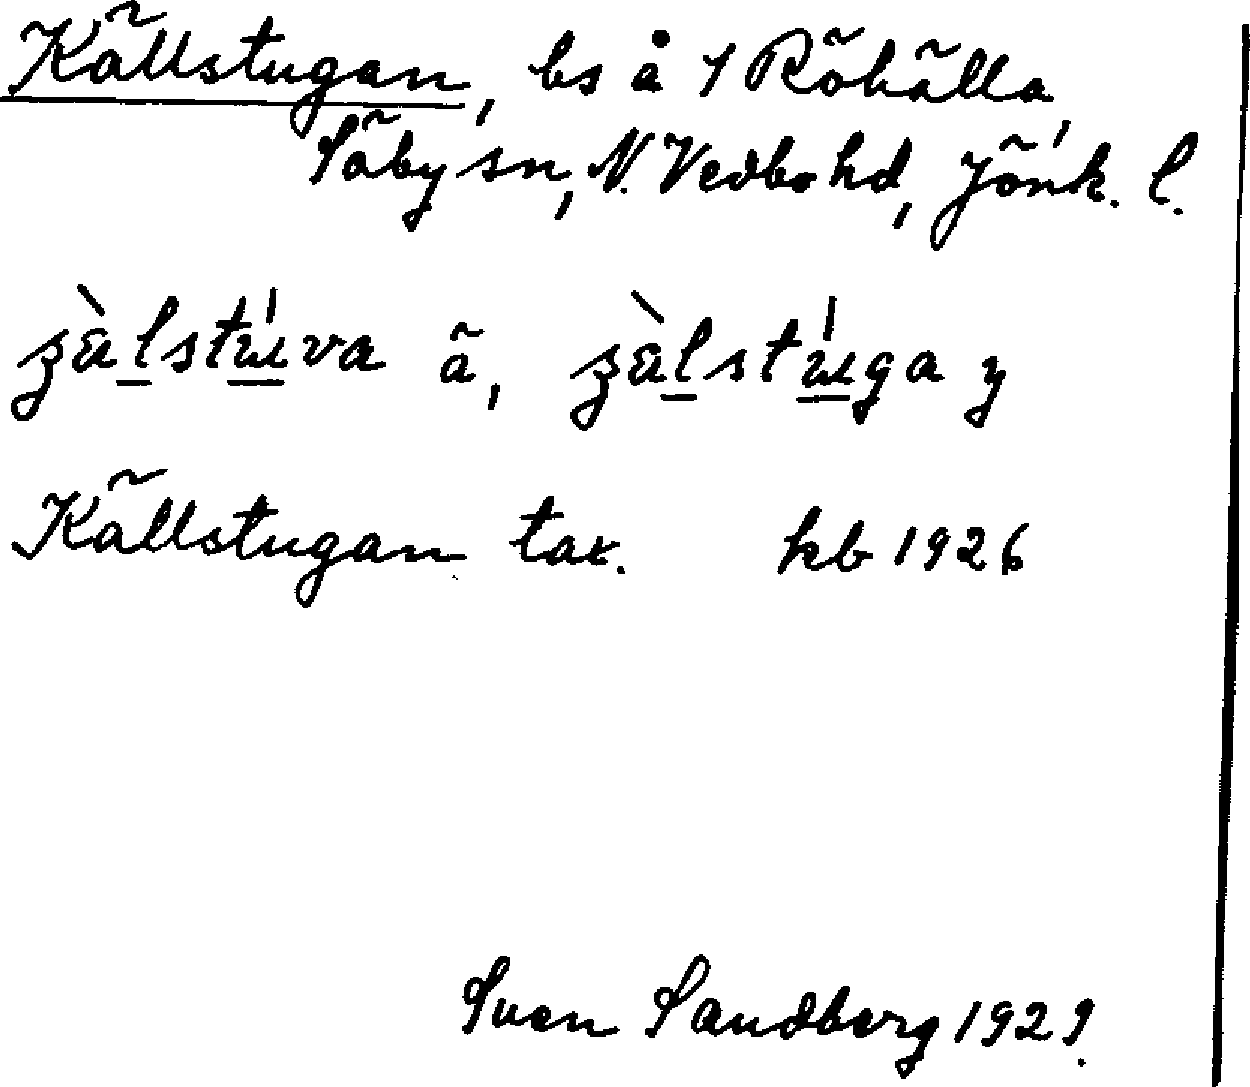 Källstugan, bs å 1 Röhälla,
Säby sn, N. Vedbo hd, Jönk. l.
ʒàlstúva ä, ʒàlstúga y
Källstugan tax. kb 1926
Sven Sandberg 1929.